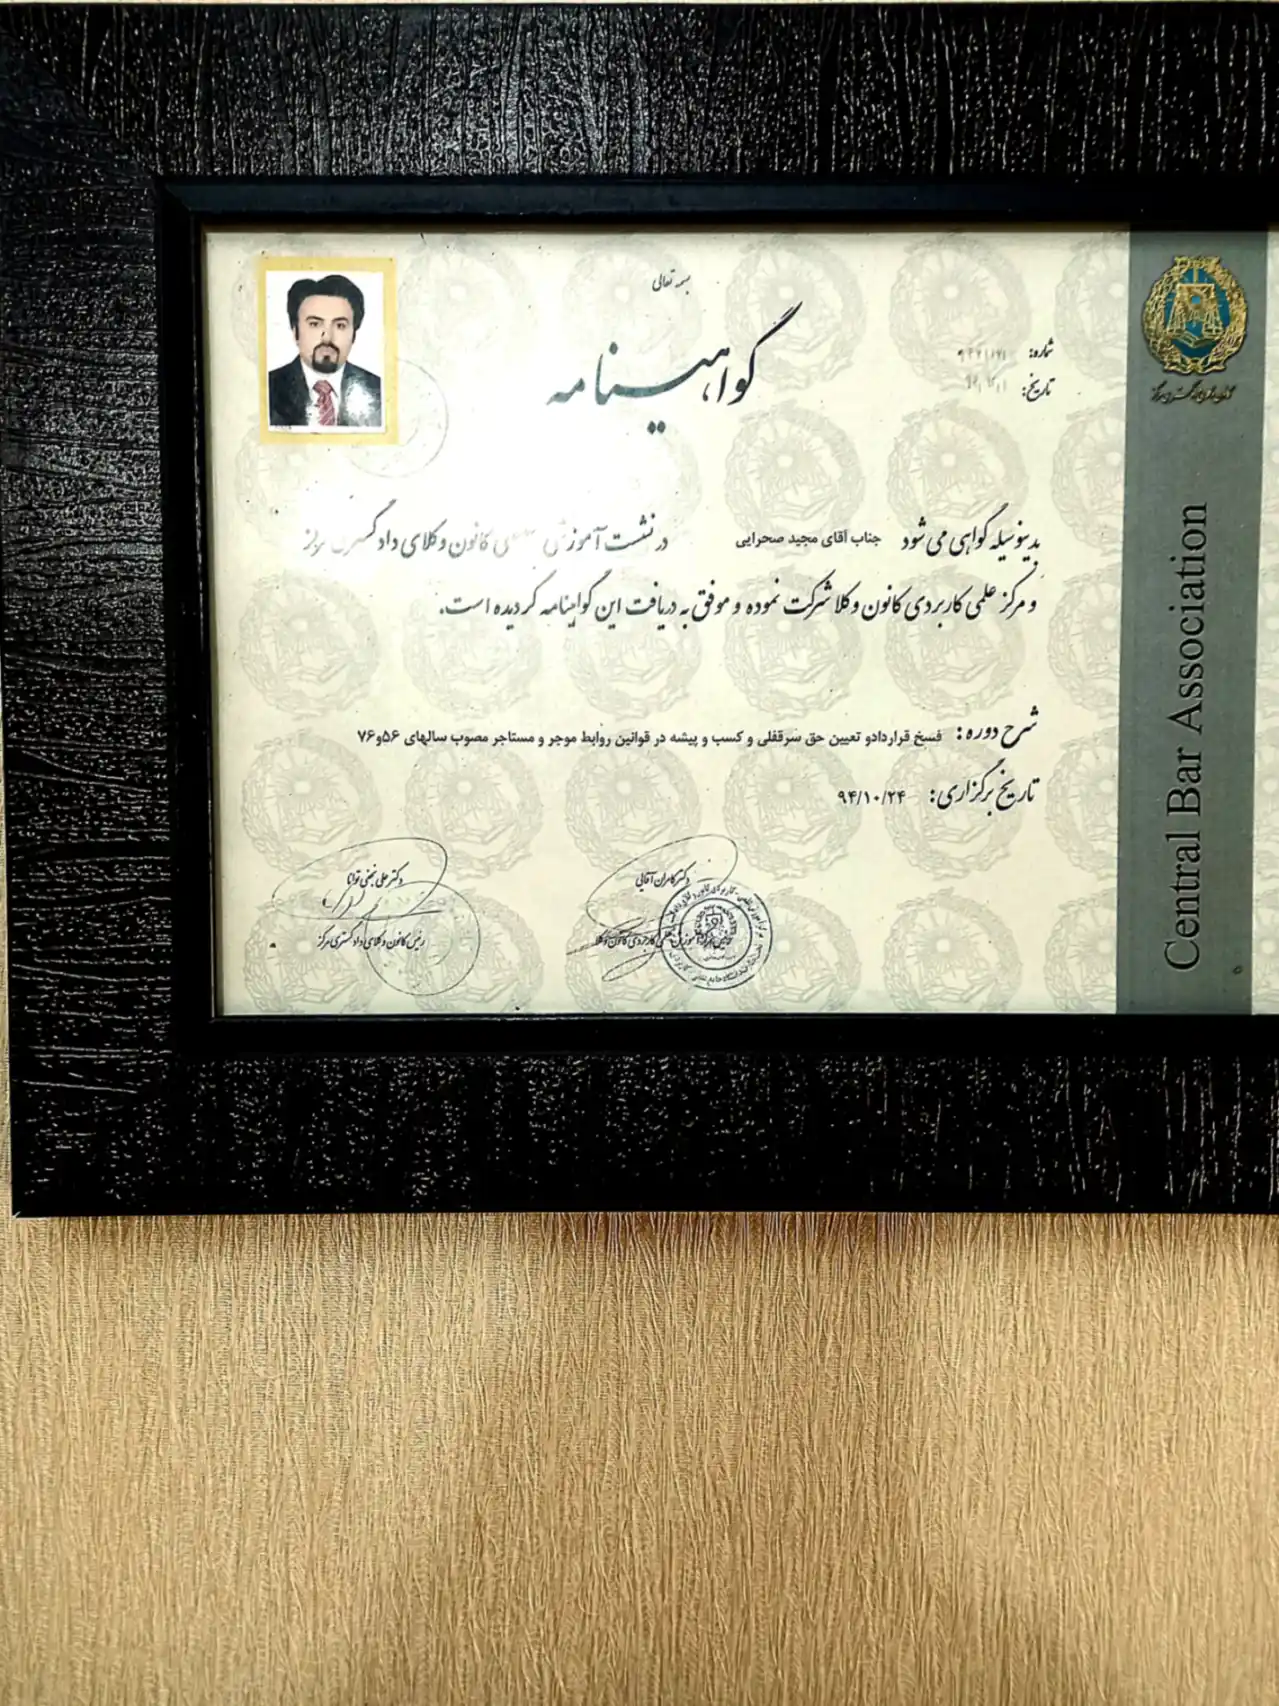 بسمه تعالی
گواهینامه
شماره:
تاریخ:
بدینوسیله گواهی می شود جناب آقای مجید صحرایی در نشست آموزشی کانون وکلای دادگستری مرکز
و مرکز علمی کاربردی کانون وکلا شرکت نموده و موفق به دریافت این گواهینامه گردیده است.
شرح دوره: فسخ قراردادو تعیین حق سرقفلی و کسب و پیشه در قوانین روابط موجر و مستاجر مصوب سالهای ۵۶و۷۶
تاریخ برگزاری: ۹۴/۱۰/۲۴
دکتر کامران آقائی
دکتر علی نجفی توانا
رئیس کانون وکلای دادگستری مرکز
کانون وکلای دادگستری مرکز
Central Bar Association